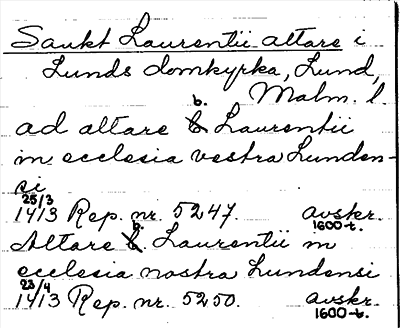 Sankt Laurentii altare i
Lunds domkyrka, Lund,
Malm. l.
ad altare b. Laurentii
in ecclesia vestra Lunden-
si
25/3
1413 Rep. nr. 5247. avskr.
1600-t.
Altare b. Laurentii in
ecclesia nostra Lundensi
23/4
1413 Rep. nr. 5250. avskr.
1600-t.